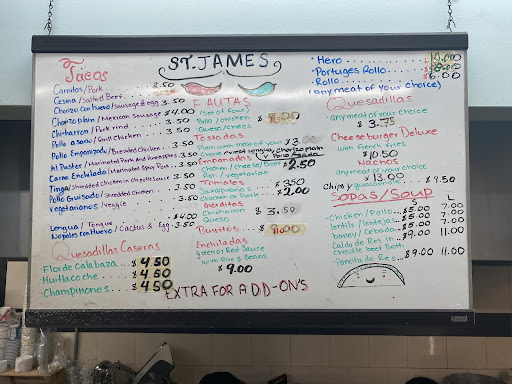 ST. JAMES
Tacos
Carnitos/Pork 3.50
Cesina/Salted Beef
Chorizo con Huevo/Sausage & egg 3.50
Chorto plain/Mexican Sausage $4.00
Chicharron/Pork rind 3.50
Pollo asado/Grill Chicken 3.50
Pollo Empanizado/Breaded Chicken 3.50
Al Pastor/Marinated Pork And Pineapples 3.50
Carne Enchilada/Marinated Spicy Pork 3.50
Tinga/Shredded Chicken in Chipotle Sauce 3.50
Pollo Guisado/Shredded Chicken 3.50
Vegetarianos/Veggie 3.50
Lengua/Tongue $4.00
Nopales con Huevo/Cactus & Egg 3.50
Quesadillas Caseras
Flor de Calabaza $4.50
Huitlacoche $4.50
Champinones $4.50
FLAUTAS
(set of four)
Pollo/chicken
Queso/cheese
Tostadas
Plain with meat of your $3
Choice except lengua, chorizo plain
y Pollo Asado
Empanadas
Chicken/cheese/Beef $2.50
fish/vegetarian
Tamales
Oaxaqueños $3.50
Chicken or Pork $2.00
Gorditas
Chicharron $3.50
Queso
Burritos
Enchiladas
green or Red Sauce
with Rice & Beans
$9.00
EXTRA FOR ADD-ON'S
Hero
Portuges Rollo
Rollo 6.00
(any meat of your choice)
Quesadillas
any meat of your choice
$3.75
Cheeseburger Deluxe
with french fries
$10.50
Nachos
any meat of your choice
$13.00
Chips y guacamole $9.50
Sopas/Soup
S L
Chicken/Pollo $5.00 7.00
lentils/lentejas $5.00 7.00
barley/Cebada $5.00 7.00
Caldo de Res in $9.00 11.00
Chipotle beef Broth
Pancita de Res $9.00 11.00